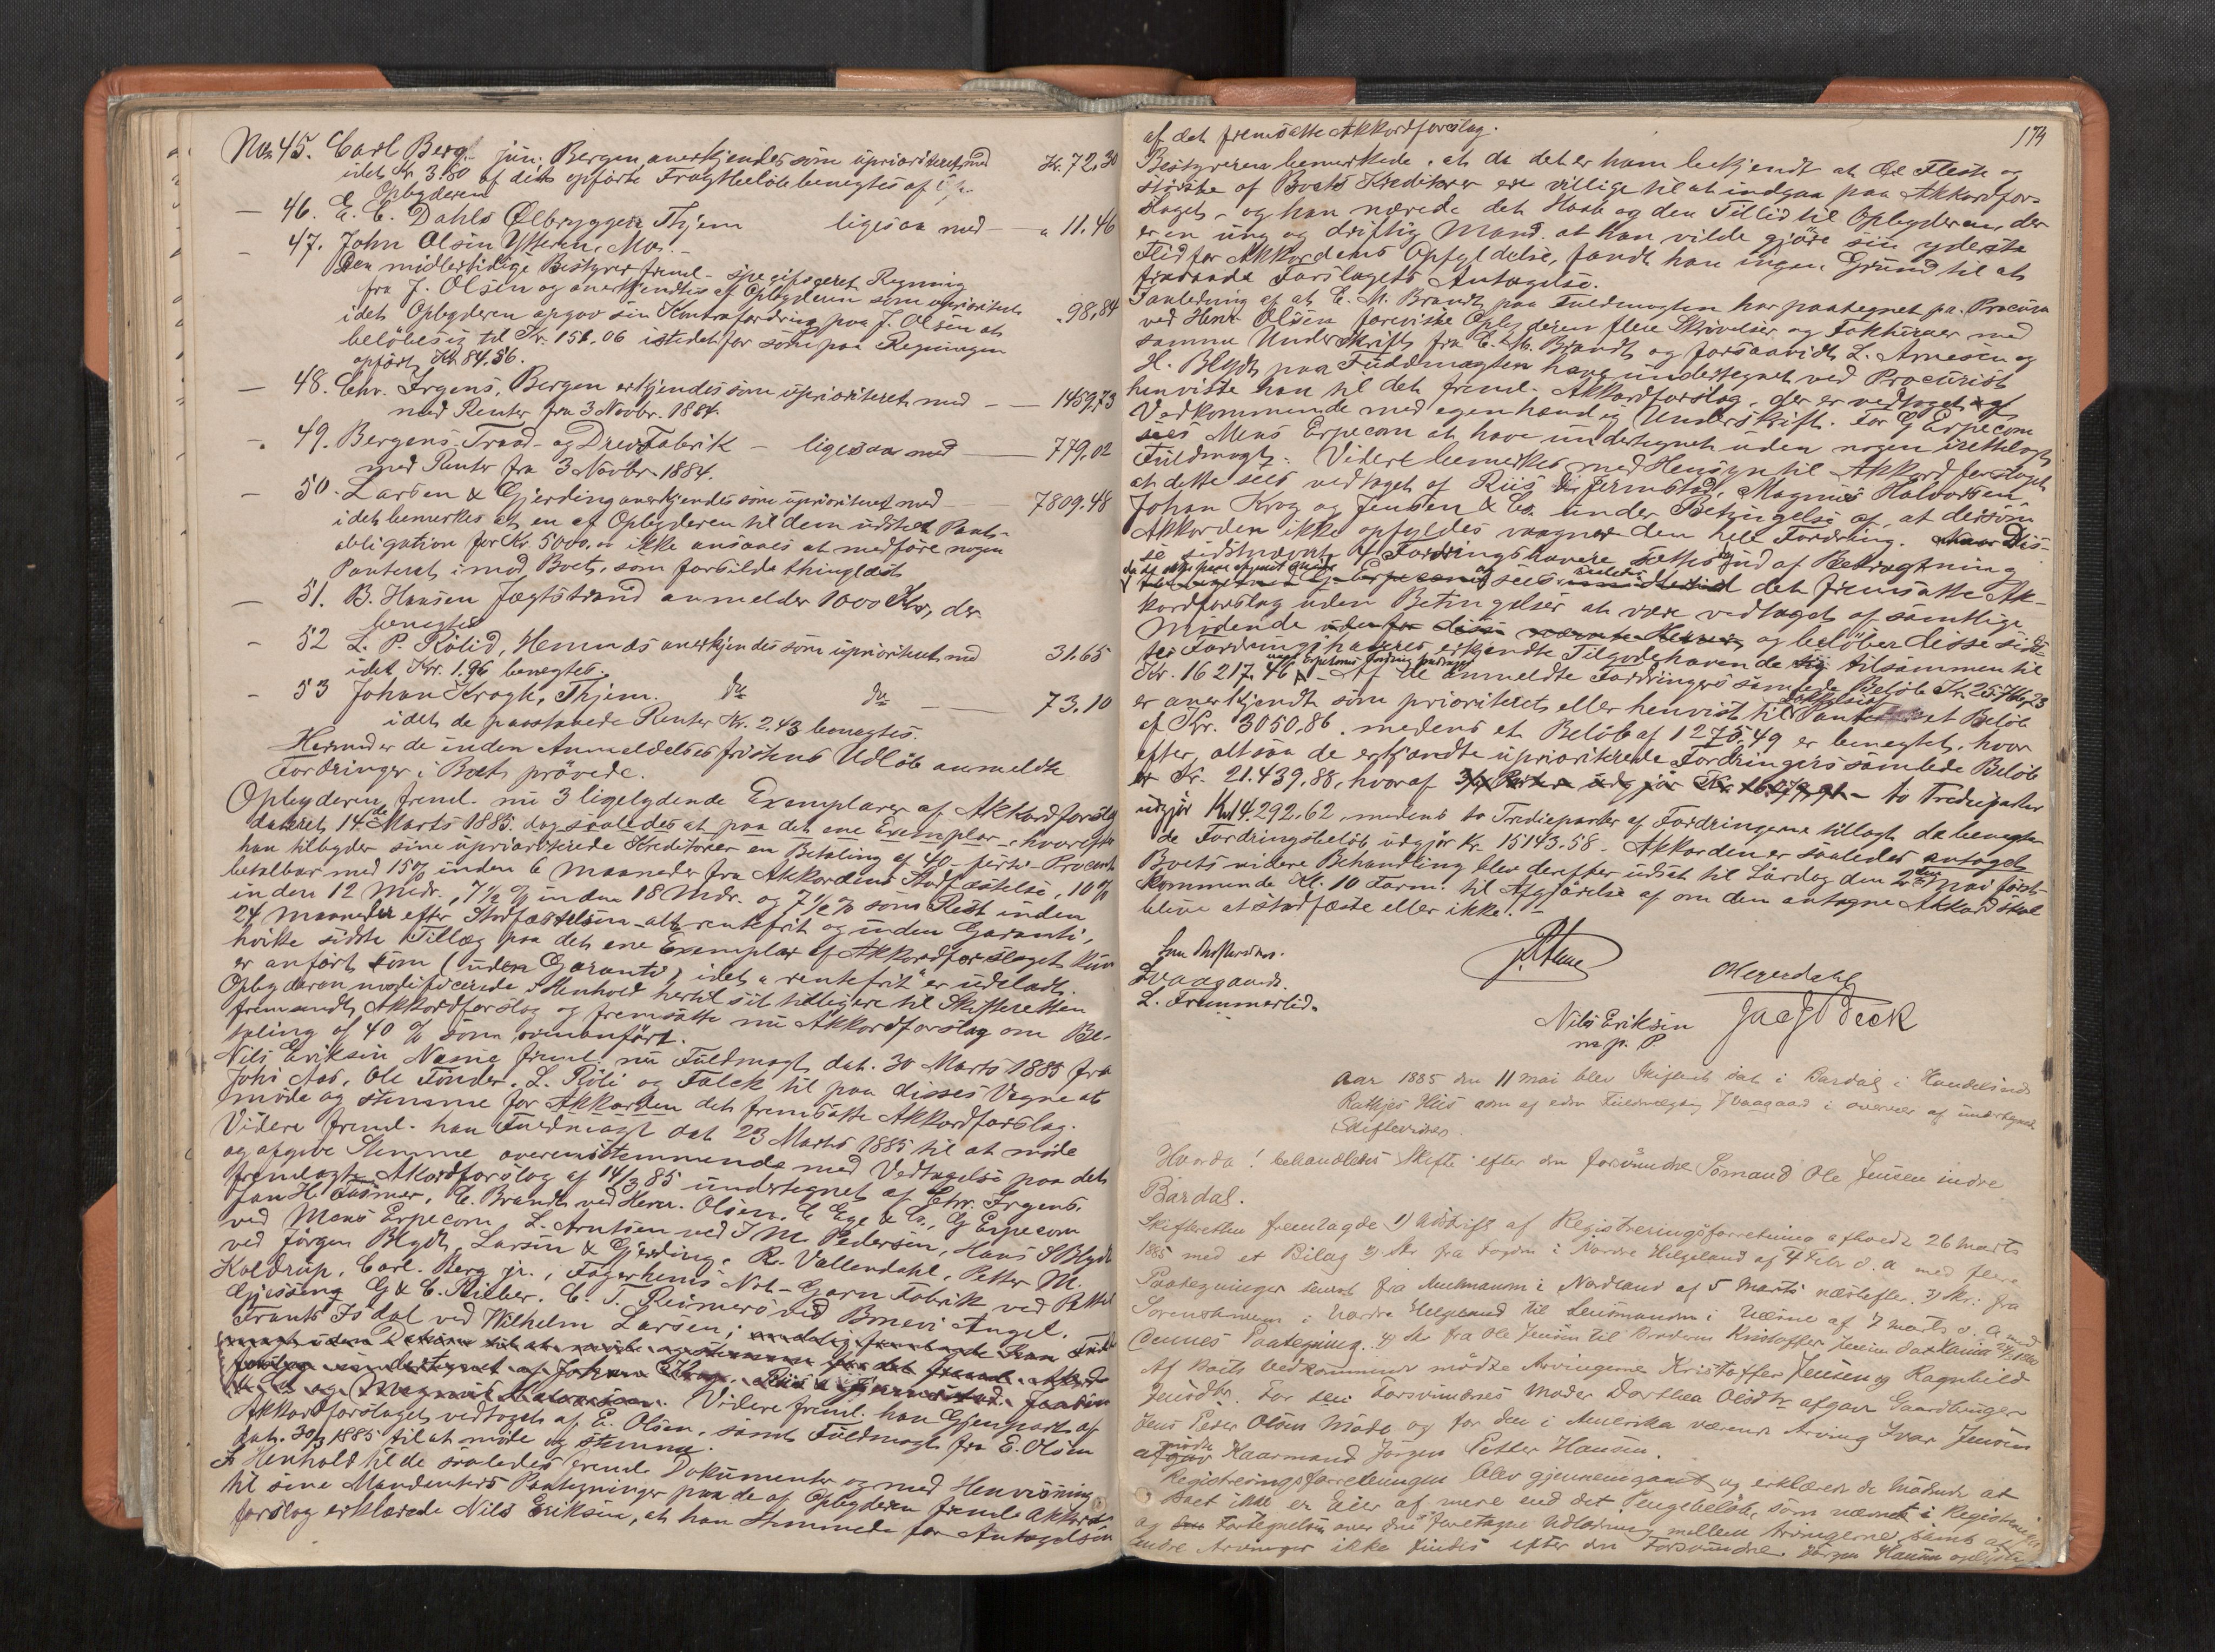 No 45. Carl Berg jun. Bergen anerkjendes som uprioriteret med Kr. 72,30
idet Kr 3.50 af dets opførte Fragtbeløb benegtes af
Opbyderen
— 46. E. C. Dahls Ølbryggeri Thjem ligesaa med — " 11.46
— 47. John Olsen Ytteren, Mo. —
Den midlertidige Bestyrer freml. specificeret Regning
fra J. Olsen og anerkjendtes af Opbyderen som uprioriteret
idet Opbyderen opgav sin Kontrafordring paa J. Olsen at 98,84
beløbe sig til Kr. 151.06 istedet for som paa Regningen
opført Kr. 84.56.
— 48. Chr. Irgens, Bergen erkjendes som uprioriteret med — 1489,73
med Renter fra 3 Novbr. 1884.
— 49. Bergens Traad- og Drevfabrik — ligesaa med — 779.02
med Renter fra 3 Novbr 1884.
— 50. Larsen & Gjerding anerkjendes som uprioriteret med — 7809.48
idet bemerkes at en af Opbyderen til dem udstedt Pant-
obligation for Kr 5000, — ikke ansaaes at medføre nogen
Panteret imod Boet, som forsilde thinglæst
— 51. B. Hansen Jægtstrand anmelder 1000 Kr, der
benegtes
— 52 L. P. Rölid, Hemnes anerkjendes som uprioriteret med 31.65
idet Kr. 1.96 benegtes.
— 53 Johan Krogh, Thjem. do do — 73.10
idet de paastaaede Renter Kr. 2.43 benegtes.
Hermed er de inden Anmeldelsesfristens Udløb anmeldte
Fordringer i Boet prøvede.
Opbyderen freml. nu 3 ligelydende Exemplarer af Akkordforslag
dateret 14de Marts 1885. dog saaledes at paa det ene Exemplar — hvorefter
han tilbyder sine uprioriterede Kreditorer en Betaling af 40 — førti — Procent
betalbar med 15% inden 6 Maaneder fra Akkordens Stadfæstelse, 10%
inden 12 Mdr., 7½ % inden 18 Mdr. og 7½ % som Rest inden
24 Maaneder efter Stadfæstelsen — alt rentefrit og uden Garanti,
hvilke sidste Tillæg paa det ene Exemplar af Akkordforslaget kun
er anført som (uden Garanti) idet "rentefrit" er udeladt.
Opbyderen modificerede i Henhold hertil sit tidligere til Skifteretten
fremsendt Akkordforslag og fremsatte nu Akkordforslag om Be-
taling af 40 % som ovenanført.
Nils Eriksen Næsne freml. nu Fuldmagt dat. 30 Marts 1885 fra
Johs Aas, Ole Tønder, L. Röli og Falck til paa disses Vegne at
møde og stemme for Akkorden det fremsatte Akkordforslag.
Videre freml. han Fuldmagt dat 23 Marts 1885 til at møde
og afgive Stemme overensstemmende med Vedtagelse paa det
fremlagte Akordforslag af 14/3 85 undertegnet af Chr. Irgens,
Jan H. Fasmer, C. Brandt ved Henr. Olsen, C Ege & Co., G Erpecom
ved Mons Erpecom, L. Arntsen ved I M Pedersen, Hans S Blydt
ved Jørgen Blydt, Larsen & Gjerding, R. Vallendahl, Petter M.
Koldrup, Carl. Berg jr., Fagerheims Not-Garn Fabrik ved Petter
Gjessing G & C. Rieber, C. T. Reimers ved Brnevi Angel,
Frants Isdal ved Wilhelm Larsen;
Videre freml. han Gjenpart af
Akkordforslaget vedtaget af E. Olsen, samt Fuldmagt fra E. Olsen
dat. 30/3 1885 til at møde og stemme.
I Henhold til de saaledes freml. Dokumenter og med Henvisning
til sine Mandanters Paategninger paa de af Opbyderen freml. Akkord-
forslag erklærede Nils Eriksen, at han stemmede for Antagelsen
174
af det fremsatte Akkordforslag.
Bestyreren bemerkede, at da det er ham bekjendt at de Fleste og
største af Boets Kreditorer ere villige til at indgaa paa Akkordfor-
slaget, og han nærede det Haab og den Tillid til Opbyderen, der
er en ung og driftig Mand, at han vilde gjøre sin yderste
Flid for Akkordens Opfyldelse, fandt han ingen Grund til at
fraraade Forslagets Antagelse.
I Anledning af at C. M. Brandt paa Fuldmagten har paategnet pa. Procura
ved Henr Olsen foreviste Opbyderen flere Skrivelser og Fakturaer med
samme Underskrift fra C. M. Brandt og forsaavidt L. Arnesen og
H. Blydt paa Fuldmagten have undertegnet ved Procurist
henviste han til det freml. Akkordforslag, der er vedtaget af
Vedkommende med egenhændig Underskrift. For G Erpecom
sees Mons Erpecom at have undertegnet uden nogen irettelagt
Fuldmagt. Videre bemerkes med Hensyn til Akkordforslaget
at dette sees vedtaget af Riis Fjermstad, Magnus Halvorsen
Johan Krog og Jensen & Co. under Betingelse af, at dersom
Akkorden ikke opfyldes vaagner den hele Fordring. Dis-
se sidstnævnte 4 Fordringshavere sættes ud af Betragtning
da de ikke have afgivet Møde og sees det fremsatte Ak-
kordforslag uden Betingelser at være vedtaget af samtlige
Mødende og beløber disse sidst-
Fordringshaveres erkjendte Tilgodehavende sig tilsammen til
Kr. 16217,46 naar Erpecoms Fordring fradrages. Af de anmeldte Fordringers samlede Beløb Kr. 25766,23
er anerkjendt som prioriteret eller henvist til Pant et Beløb
af Kr. 3050.86, medens et Beløb af 1275,49 er benegtet, hvor
efter altsaa de erkjendte uprioriterede Fordringers samlede Beløb
er Kr. 21.439,88, hvoraf to Trediparter
udgjør Kr 14.292.62, medens to Trediparter af Fordringerne tillagt de benegte-
de Fordringsbeløb udgjør Kr. 15143.58. Akkorden er saaledes antaget
Boets videre Behandling blev derefter udsat til Lørdag den 2den Mai først-
kommende Kl. 10 Form. til Afgjørelse af om den antagne Akkord skal
blive at stadfæste eller ikke. —
Som Skiftevidner.
L. Frammerlid.
Meyerdahl
Nils Eriksen Jac J Beck
m. p. P
Aar 1885 den 11 mai blev Skifteret sat i Bardal i Handelsmd
Rathjes Hus adm af edsv Fuldmægtig J Vaagaad i overvær af undertegnede
Skiftevidner.
Hvorda! behandledes Skifte efter den forsvundne Sømand Ole Jensen indre
Bardal.
Skifteretten fremlagde 1) Udskrift af Registreringsforretning afholdt 26 Marts
1885 med et Bilag 2) Skr fra Fogden i Nordre Helgeland af 4 Febr d. a med flere
Paategninger senest fra Amtmanden i Nordland af 5 Marts næstefter. 3) Skr: fra
Sorenskriveren i Nordre Helgeland til Lensmanden i Næsne af 7 Marts d. a med
dennes Paategning. 4) Skr fra Ole Jensen til Broderen Kristoffer Jensen dat
Af Boets Vedkommende mødte Arvingerne Kristoffer Jensen og Ragnhild
Jensdtr. For den Forsvundnes Moder Dorthea Olsdtr afgav Gaardbruger
Jens Peder Olsen Møde og for den i Amerika værende Arving Ivar Jensen
mødte Kaarmand Jørgen Petter Hansen.
Registreringsforretningen blev gjennemgaaet og erklærede de Mødende at
Boet ikke er Eier af mere end det Pengebeløb, som nævnt i Registrering
og Fortegnelsen over den foretagne Udlodning mellem Arvingerne samt at
andre Arvinger ikke findes efter den Forsvundne. Jørgen Hansen oplyste